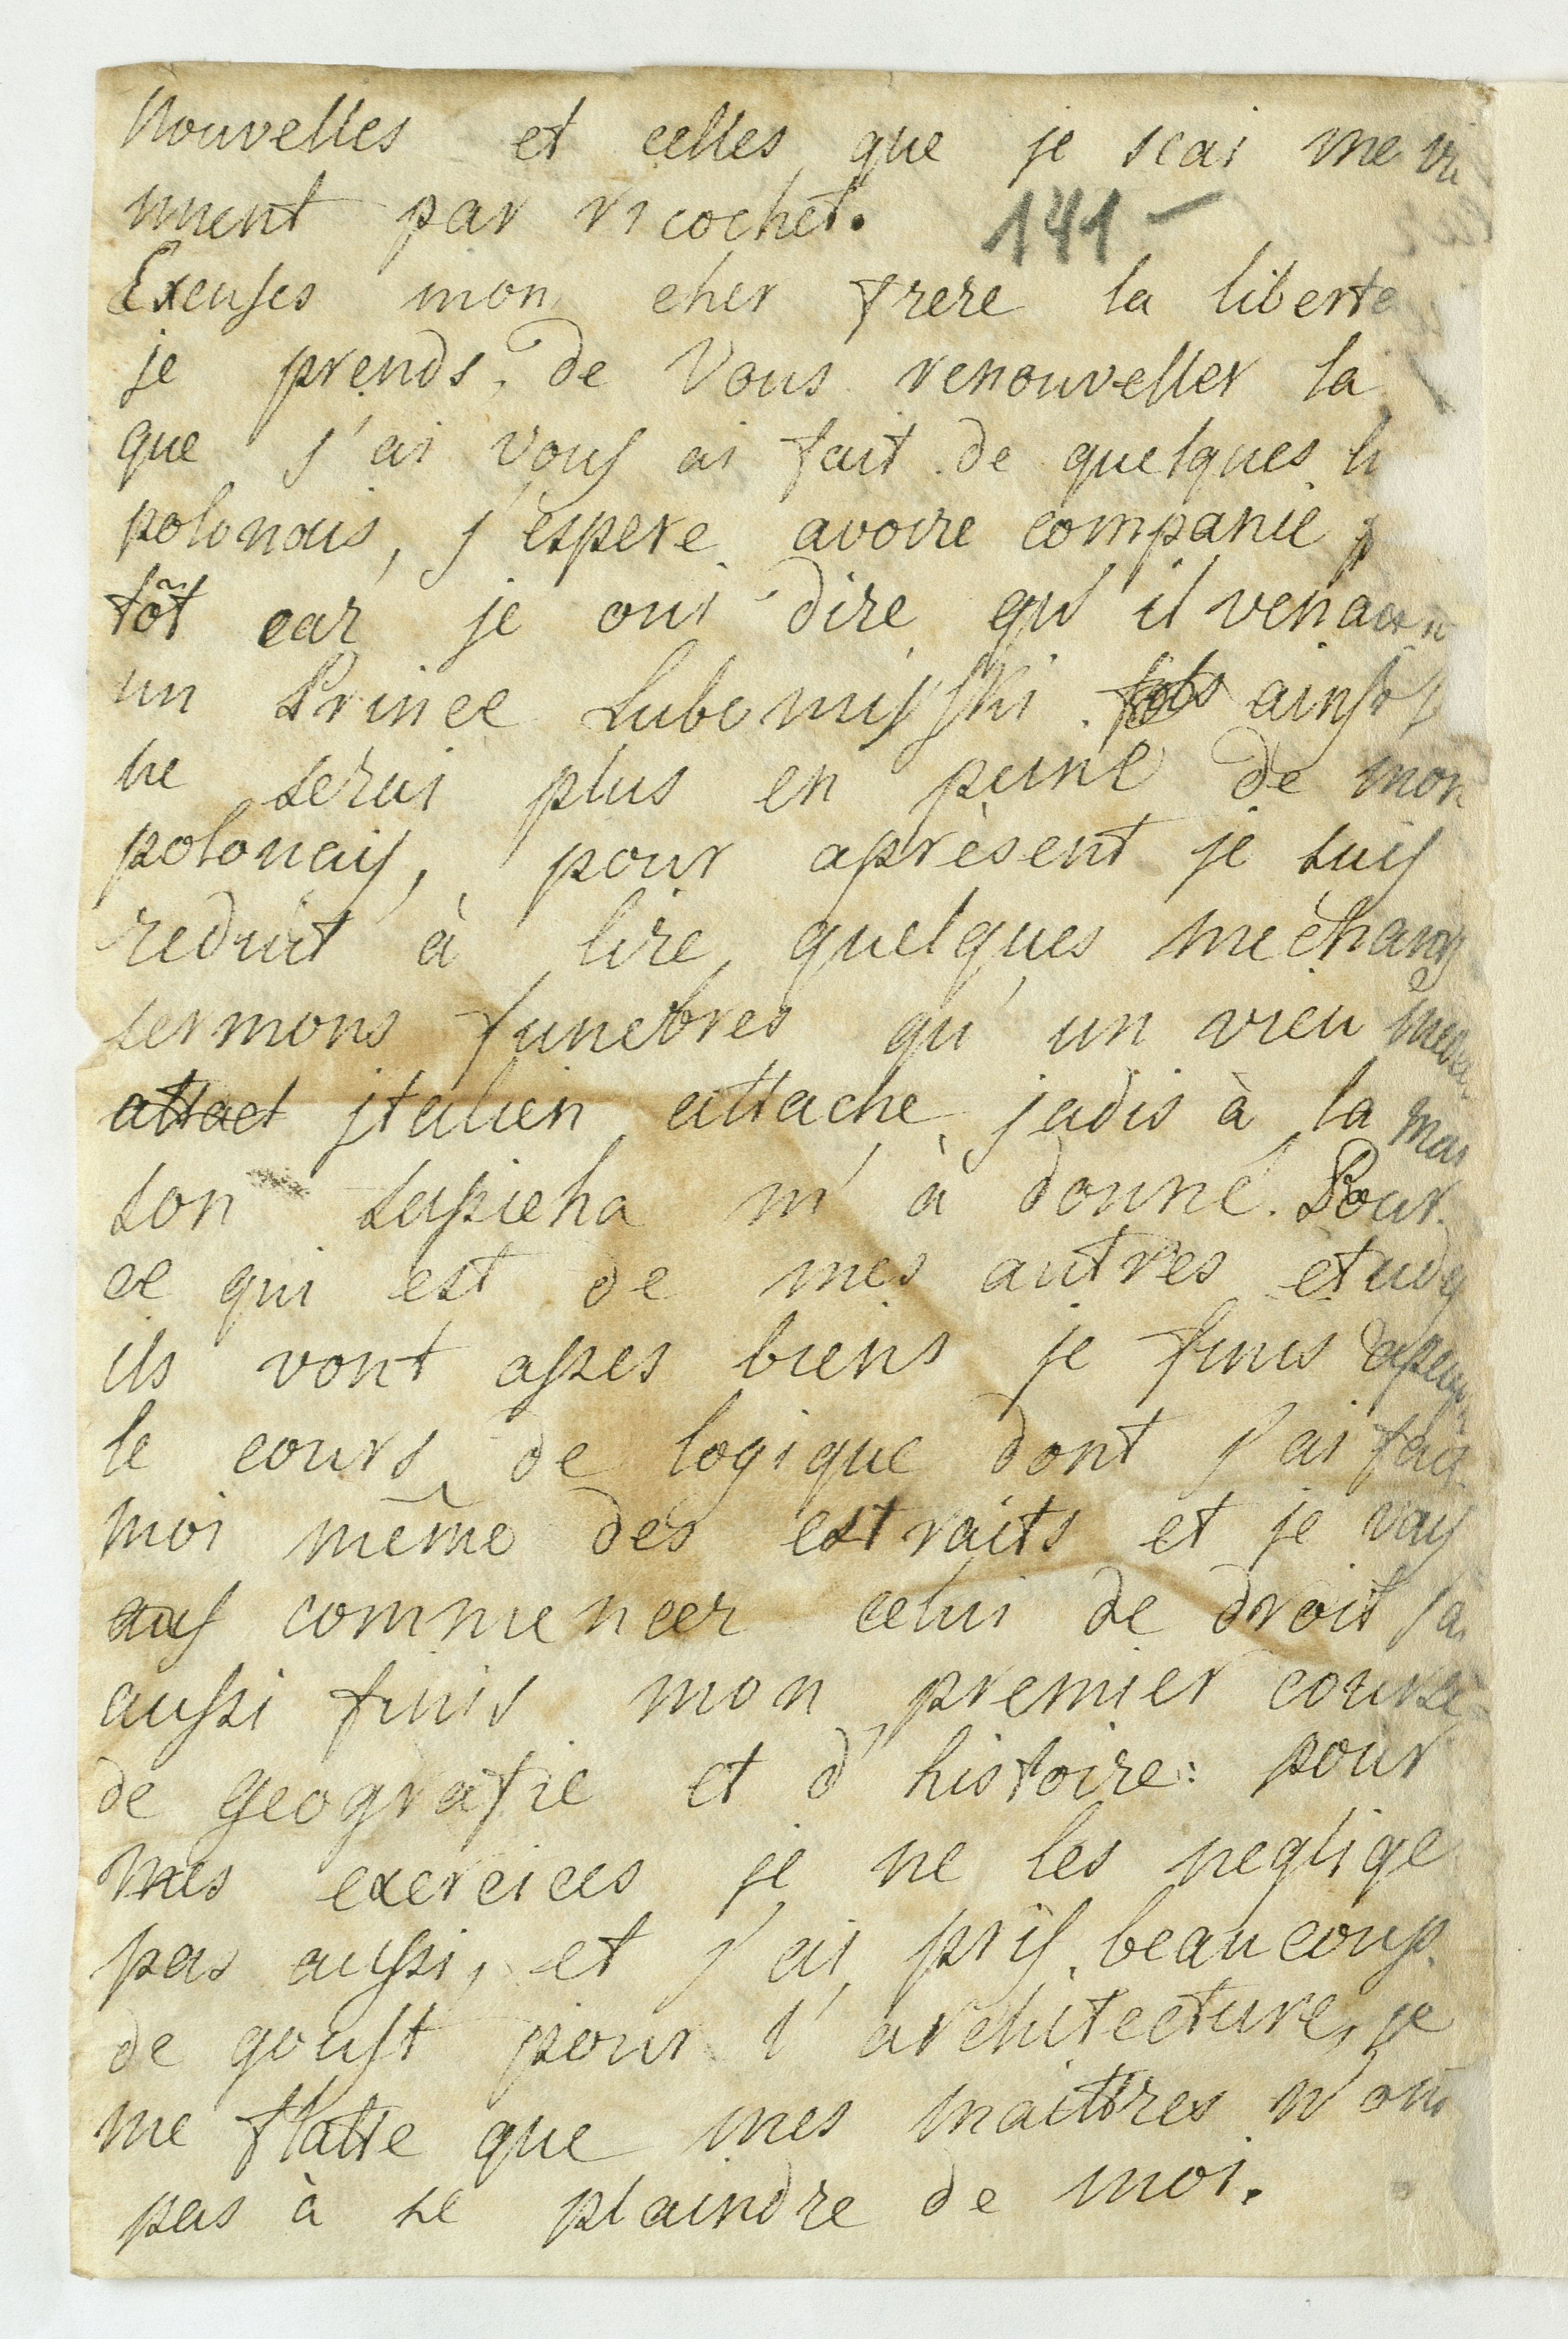 Nouvelles et celles que je scai me vi
nnent par ricochet.
141 -
Excuses mon cher frere la liberte
je prends, de Vous renouveller la
que j'ai vous ai fait de quelques li
polonais, j'espere avoire companie
tôt car je oui dire qu'il venait
un Prince Lubomisski ainsi
ne serai plus en peine de mon
polonais, pour aprèsent je suis
reduit à lire quelques méchans
sermons funebres qu'un vieu
attact jtalien attache jadis à la mai
son Sapieha m'à donné. Pour
ce qui est de mes autres etudes
ils vont asses biens je finis apeu
le cours de logique dont j'ai fait
moi même des estraits et je vais
commencer celui de droit j'ai
aussi finis mon premier course
de geografie et d'histoire: pour
mes exercices je ne les neglige
pas aussi, et j'ai pris beaucoup
de goust pour l'architecture, je
me flatte que mes maittres n'ont
pas à se plaindre de moi.